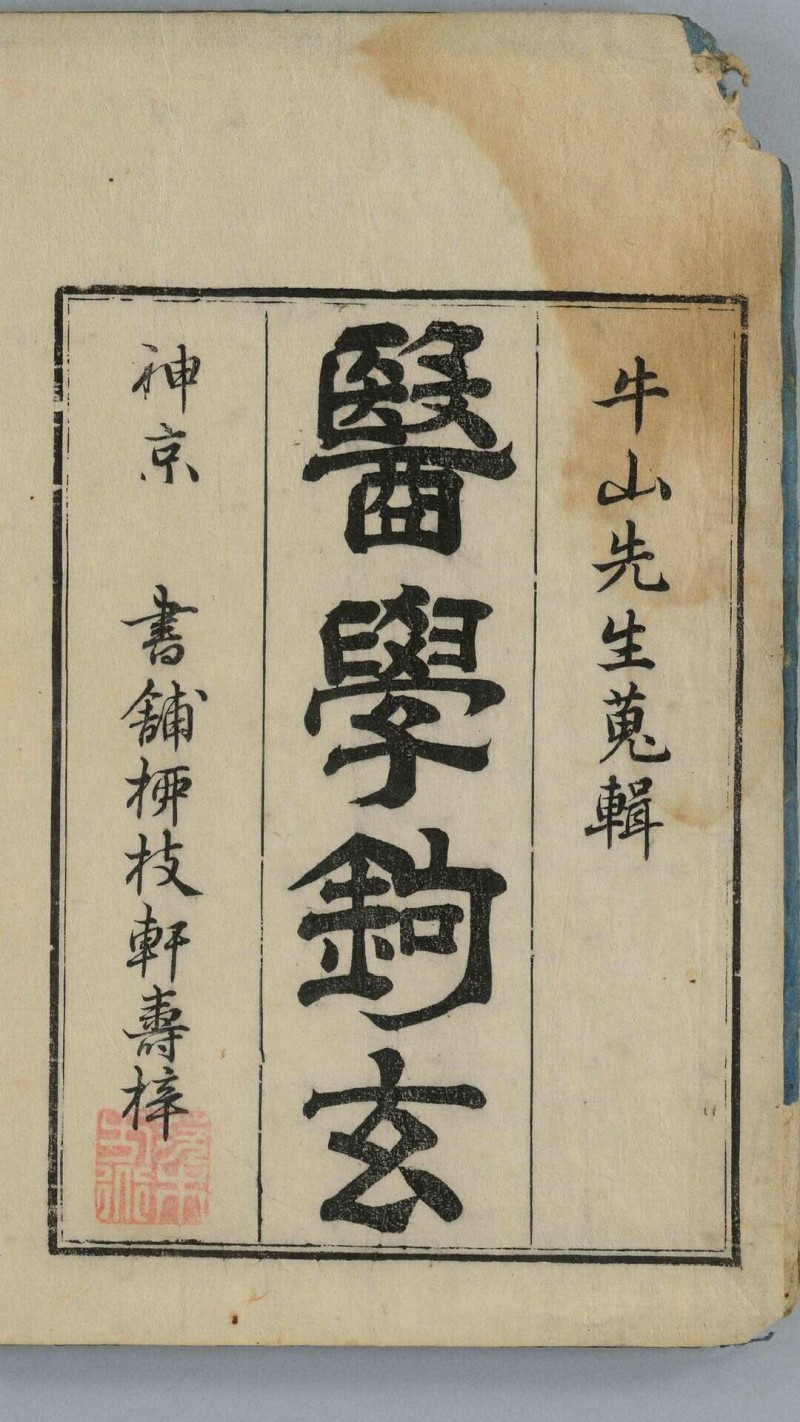 牛山先生蒐輯
醫學鉤玄
神京 書舗栁枝軒壽梓